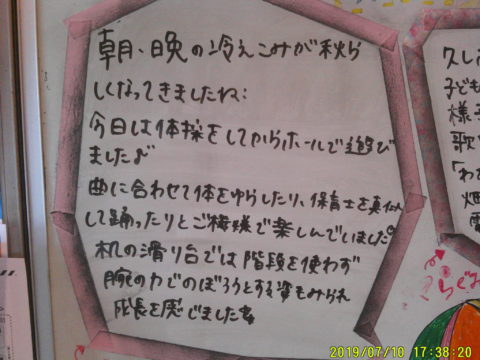 朝、晩の冷えこみが秋ら
しくなってきましたね:
今日は体操をしてからホールで遊び
ました♪
曲に合わせて体をゆらしたり、保育士を真似
して踊ったりとご機嫌で楽しんでいました。
机の滑り台では階段を使わず
腕の力でのぼろうとする姿もみられ
成長を感じました
久し
子ども
様子
歌い
「わ
畑
2019/07/10 17:38:20